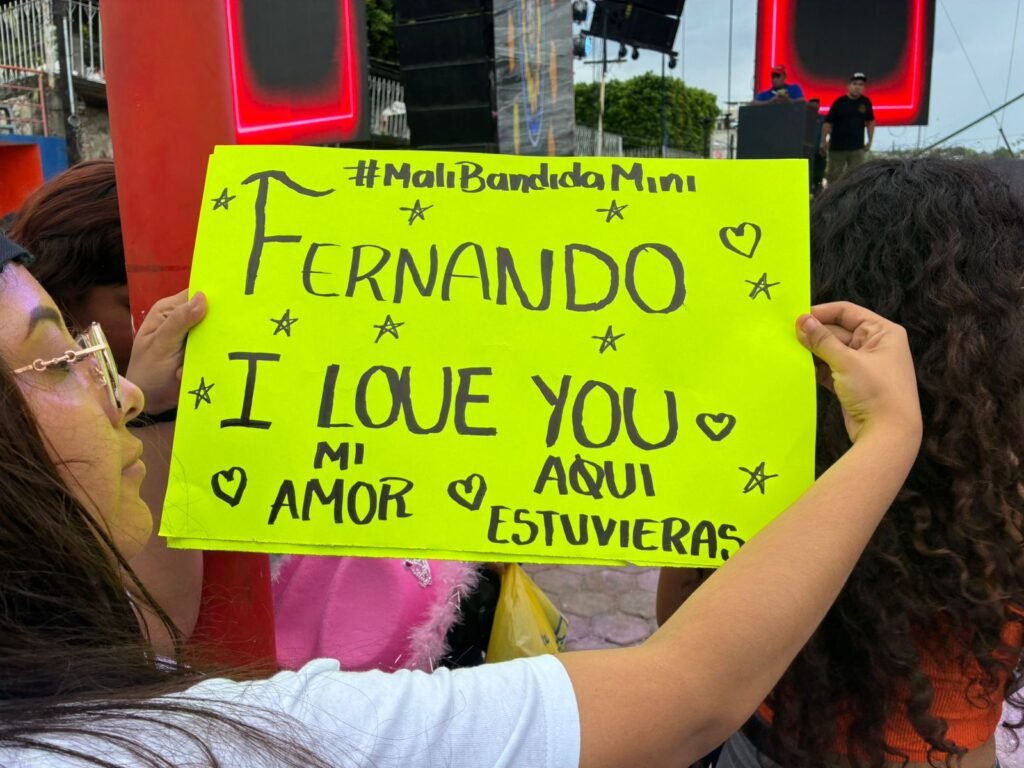 #MaliBandidaMini
FERNANDO
I LOVE YOU
MI
AMOR
AQUI
ESTUVIERAS